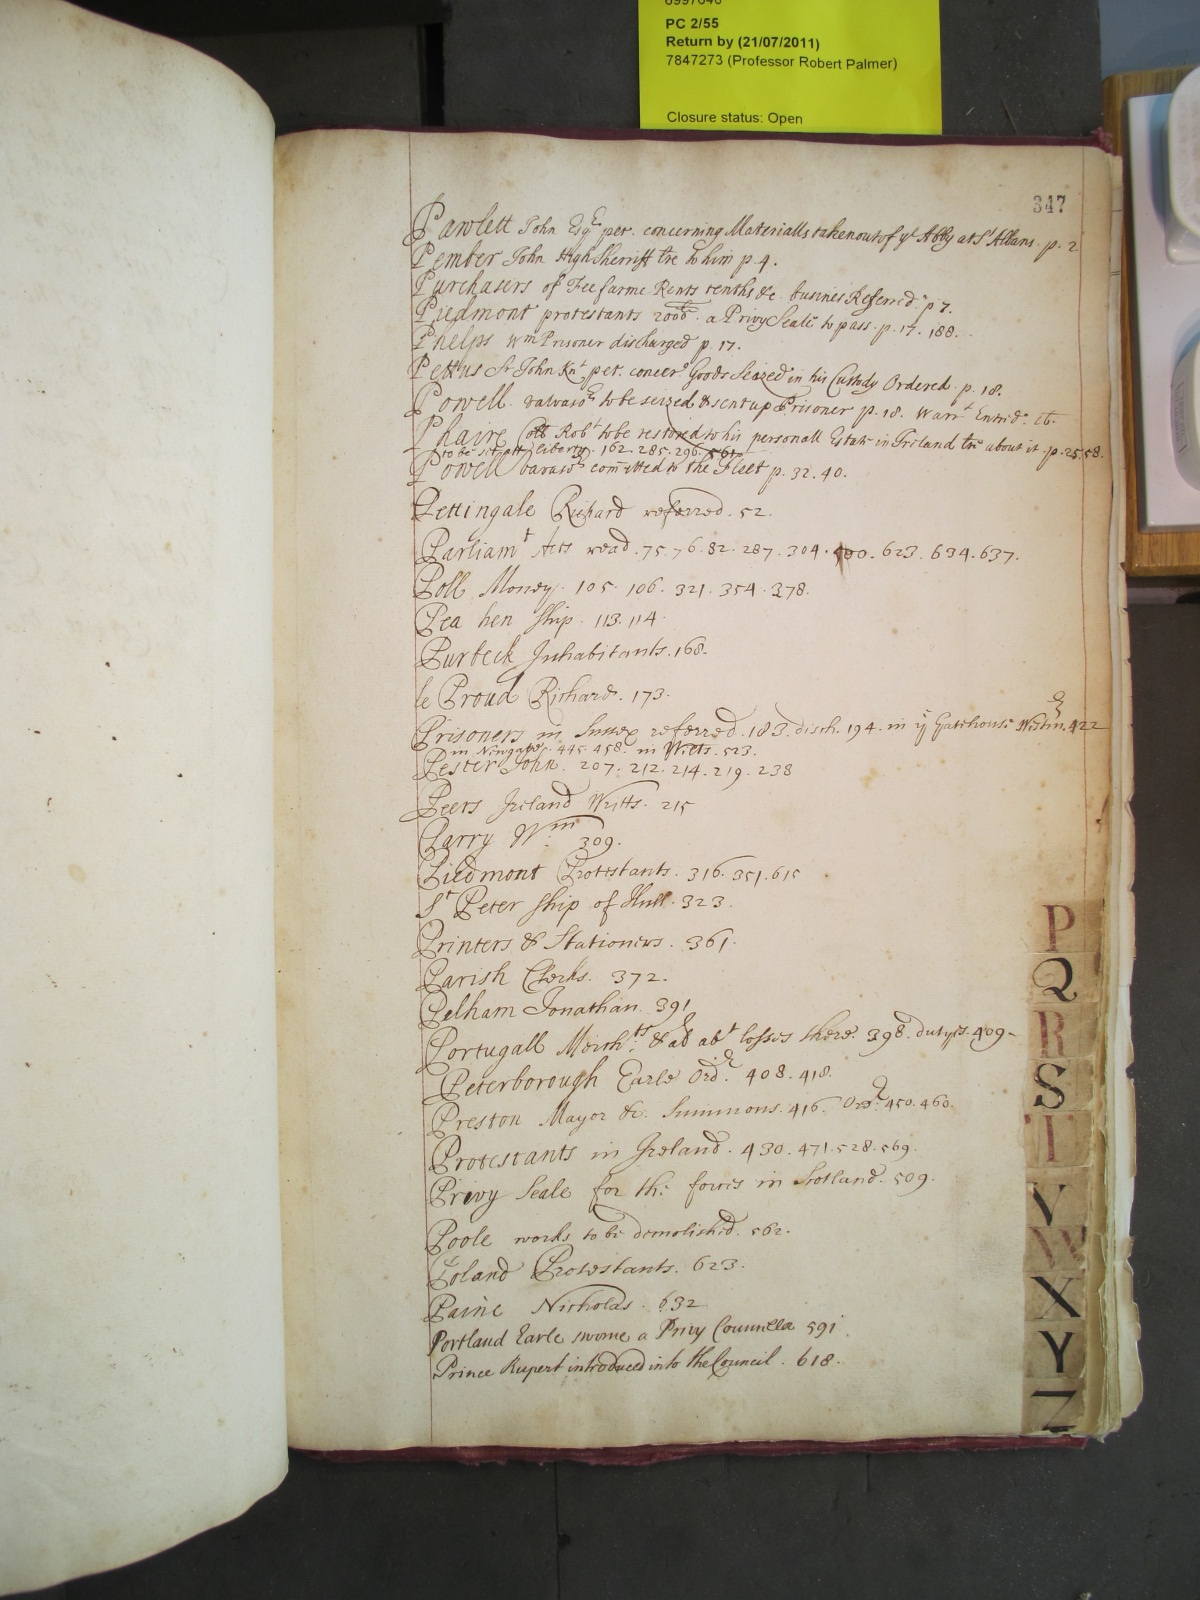 PC 2/55
Return by (21/07/2011)
7847273 (Professor Robert Palmer)
Closure status: Open
347
Pawlett John Esqr pet. concerning Materialls taken out of ye Abby at St Albans. p. 2
Pember John High Sherriff lre to him p. 4.
Purchasers of Fee farme Rents tenths &c. busines Referred. p 7.
Piedmont protestants 2000li. a Privy Seale to pass. p. 17. 188.
Phelps Wm Prisoner discharged p. 17.
Pettus Sr John Knt pet. concerg Goods Seized in his Custody Ordered. p. 18.
Powell vavasor to be seized & sent up Prisoner p. 18. Warrt Entrd. ib.
Phaire Coll Robt to be restored to his personall Estate in Ireland lre about it. p. 25. 58.
to be set att liberty. 162. 285. 296. 561.
Powell vavasor comitted to the Fleet p. 32. 40.
Pettingale Richard referred. 52.
Parliamt Acts read. 75. 76. 82. 287. 304. 500. 623. 634. 637.
Poll Money. 105. 106. 321. 354. 378.
Pea hen ship. 113. 114.
Purbeck Inhabitants. 168.
le Proud Richard. 173.
Prisoners in Sussex referred. 183. disch. 194. in ye Gatehouse Westmr. 422
in Newgate. 445. 458. in Wilts. 523.
Pester John. 207. 212. 214. 219. 238
Peers Ireland Writts. 215
Parry Wm. 309.
Piedmont Protestants. 316. 351. 615
St Peter ship of Hull. 323.
Printers & Stationers. 361.
Parish Clerks. 372.
Pelham Jonathan. 391
Portugall Merchts. abt losses there. 398. dutyes. 409-
Peterborough Earle Ordr. 408. 418.
Preston Mayor &c. Summons. 416. Ordr. 450. 460.
Protestants in Ireland. 430. 471. 528. 569.
Privy Seale for the forces in Scotland. 509.
Poole works to be demolished. 562.
Poland Protestants. 623.
Paine Nicholas. 632
Portland Earle sworne a Privy Counsellr 591.
Prince Rupert introduced into the Council. 618.
P
Q
R
S
T
V
W
X
Y
Z